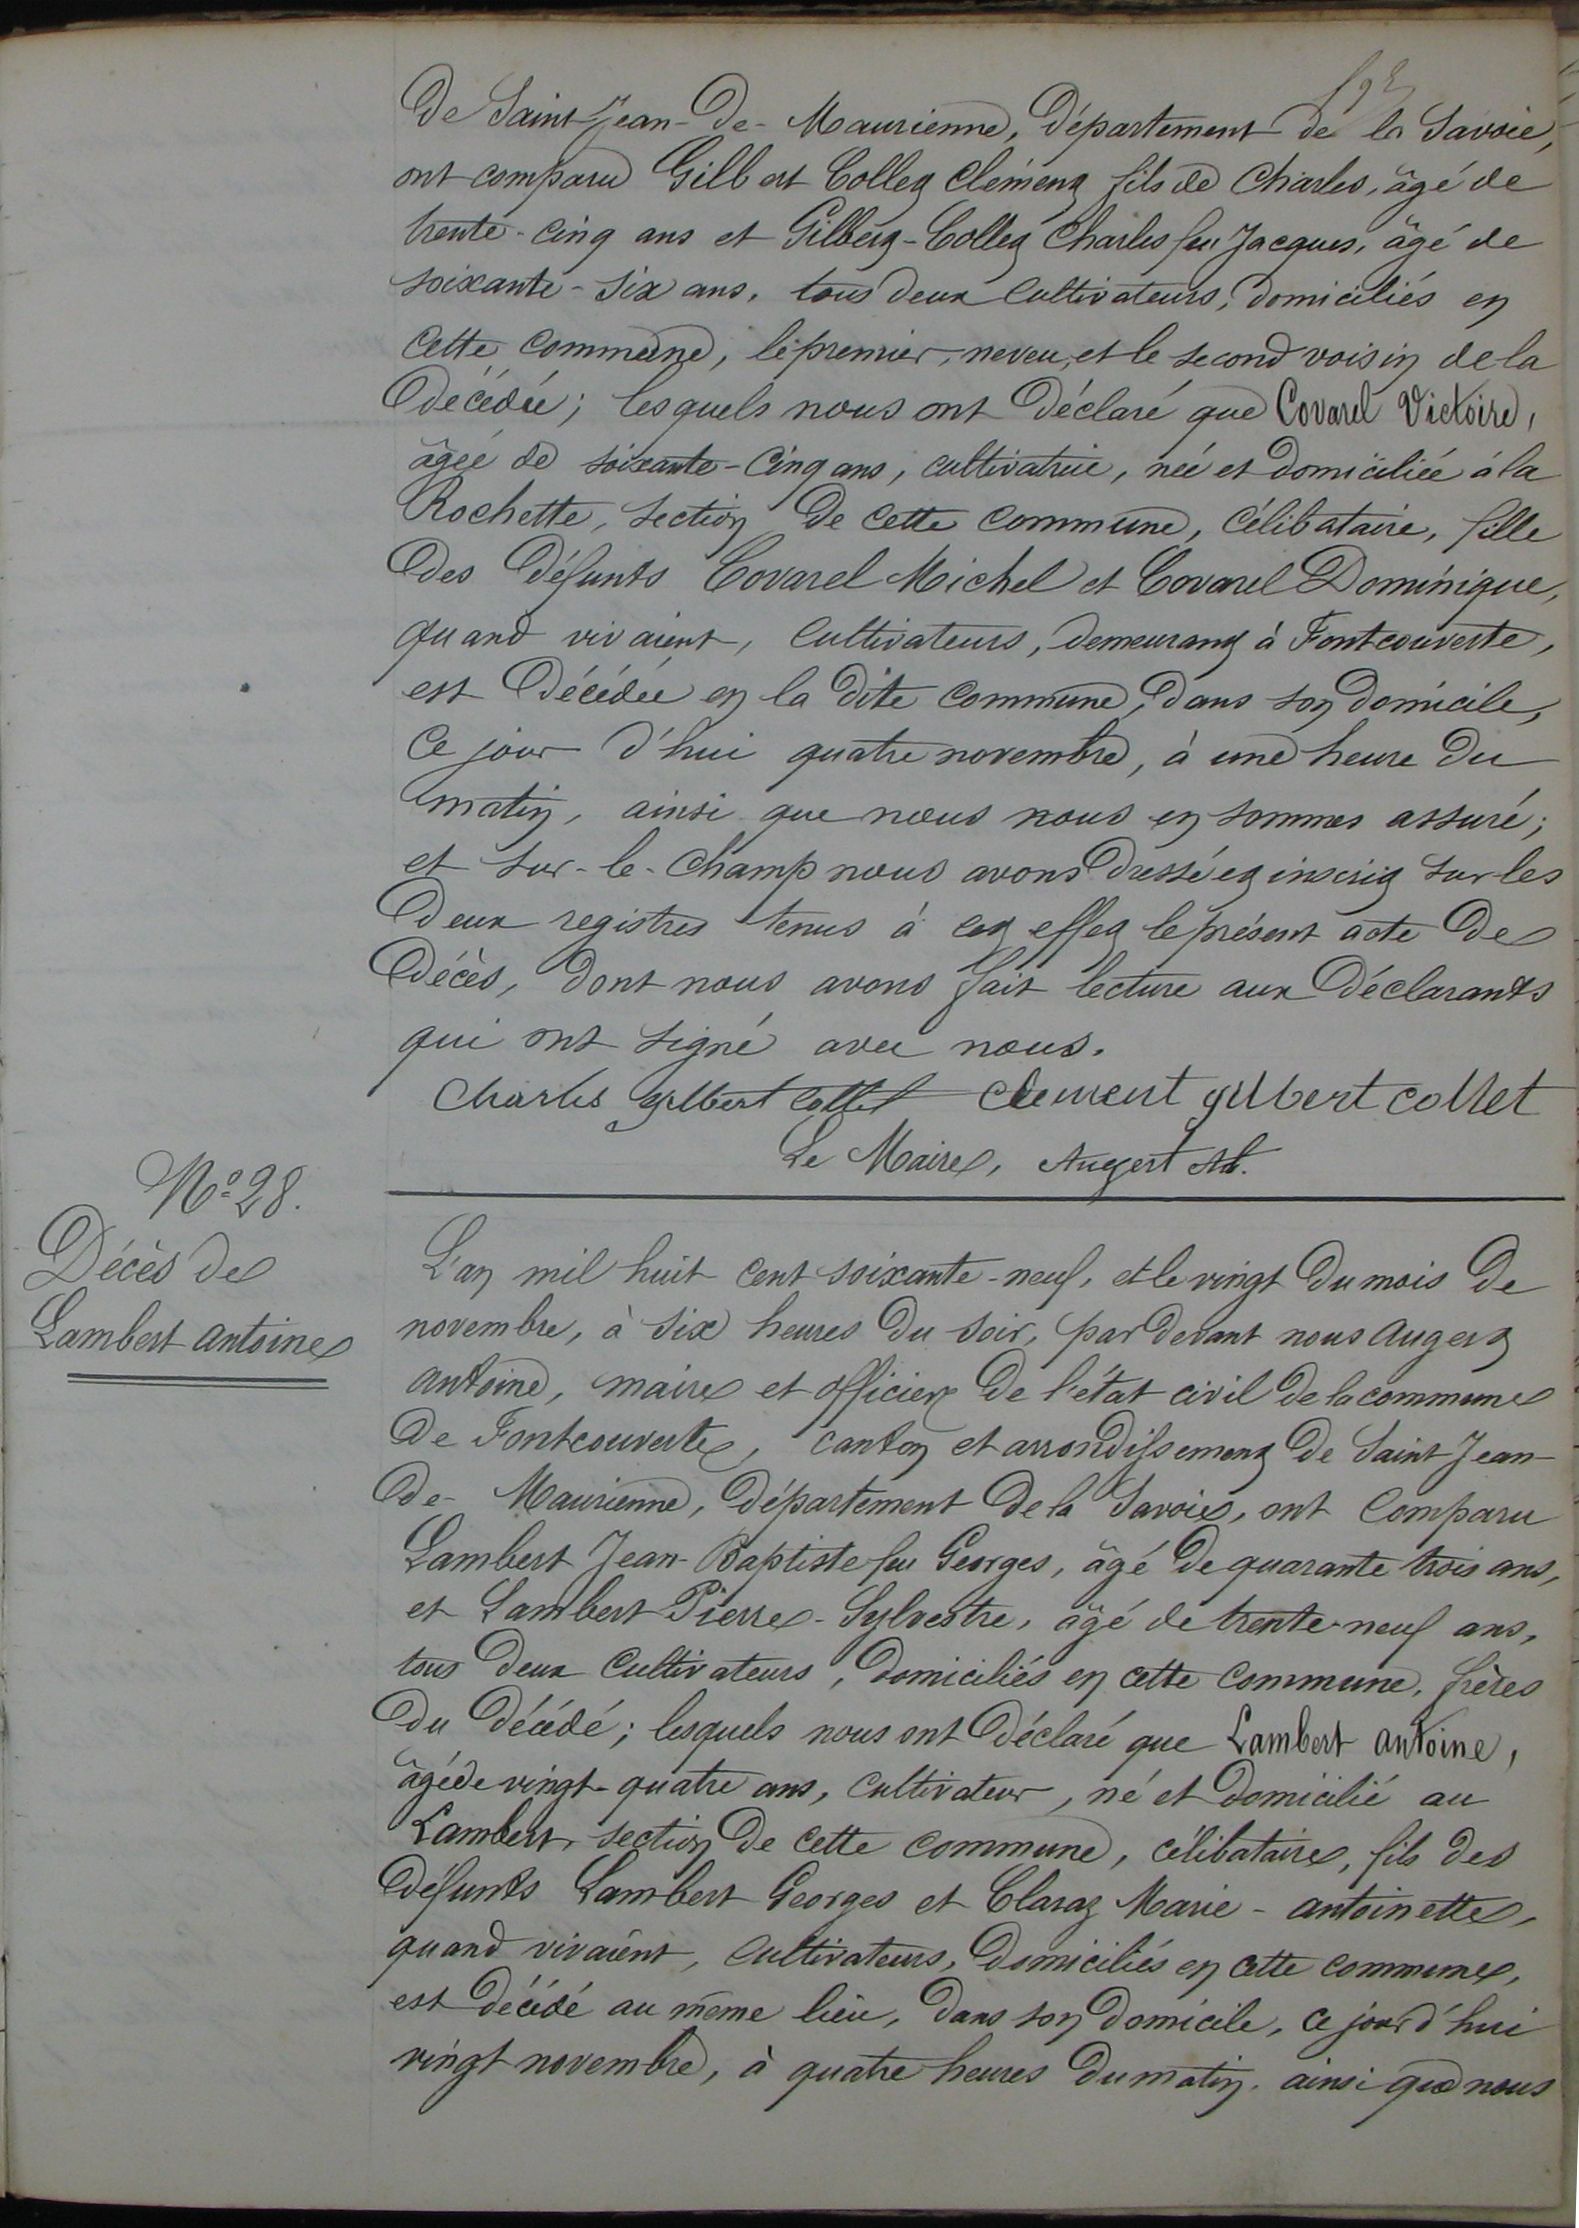 de Saint-Jean-de-Maurienne, département de la Savoie,
ont comparu Gilbert Collet Clément fils de Charles, âgé de
trente-cinq ans et Gilbert-Collet Charles feu Jacques, âgé de
soixante-six ans, tous deux cultivateurs, domiciliés en
cette commune, le premier, neveu, et le second voisin de la
décédée; lesquels nous ont déclaré que Covarel Victoire,
âgée de soixante-cinq ans, cultivatrice, née et domiciliée à la
Rochette, section de cette commune, célibataire, fille
des défunts Covarel Michel et Covarel Dominique,
quand vivaient, cultivateurs, demeurant à Fontcouverte,
est décédée en la dite commune, dans son domicile,
ce jour d'hui quatre novembre, à une heure du
matin, ainsi que nous nous en sommes assuré;
et sur-le-champ nous avons dressé et inscrit sur les
deux registres tenus à cet effet le présent acte de
décès, dont nous avons fait lecture aux déclarants
qui ont signé avec nous.
Charles gilbert collet clement gilbert collet
Le Maire, Augert At.
N° 28.
Décès de
Lambert antoine
L'an mil huit cent soixante-neuf, et le vingt du mois de
novembre, à six heures du soir, par devant nous augert
antoine, maire et officier de l'état civil de la commune
de Fontcouverte, canton et arrondissement de Saint Jean-
de-Maurienne, département de la Savoie, ont comparu
Lambert Jean-Baptiste feu Georges, âgé de quarante trois ans,
et Lambert Pierre-Sylvestre, âgé de trente-neuf ans,
tous deux cultivateurs, domiciliés en cette commune, frères
du décédé; lesquels nous ont déclaré que Lambert antoine,
âgé de vingt-quatre ans, cultivateur, né et domicilié au
Lambert, section de cette commune, célibataire, fils des
défunts Lambert Georges et Claraz Marie-antoinette,
quand vivaient, cultivateurs, domiciliés en cette commune,
est décédé au même lieu, dans son domicile, ce jour d'hui
vingt novembre, à quatre heures du matin, ainsi que nous